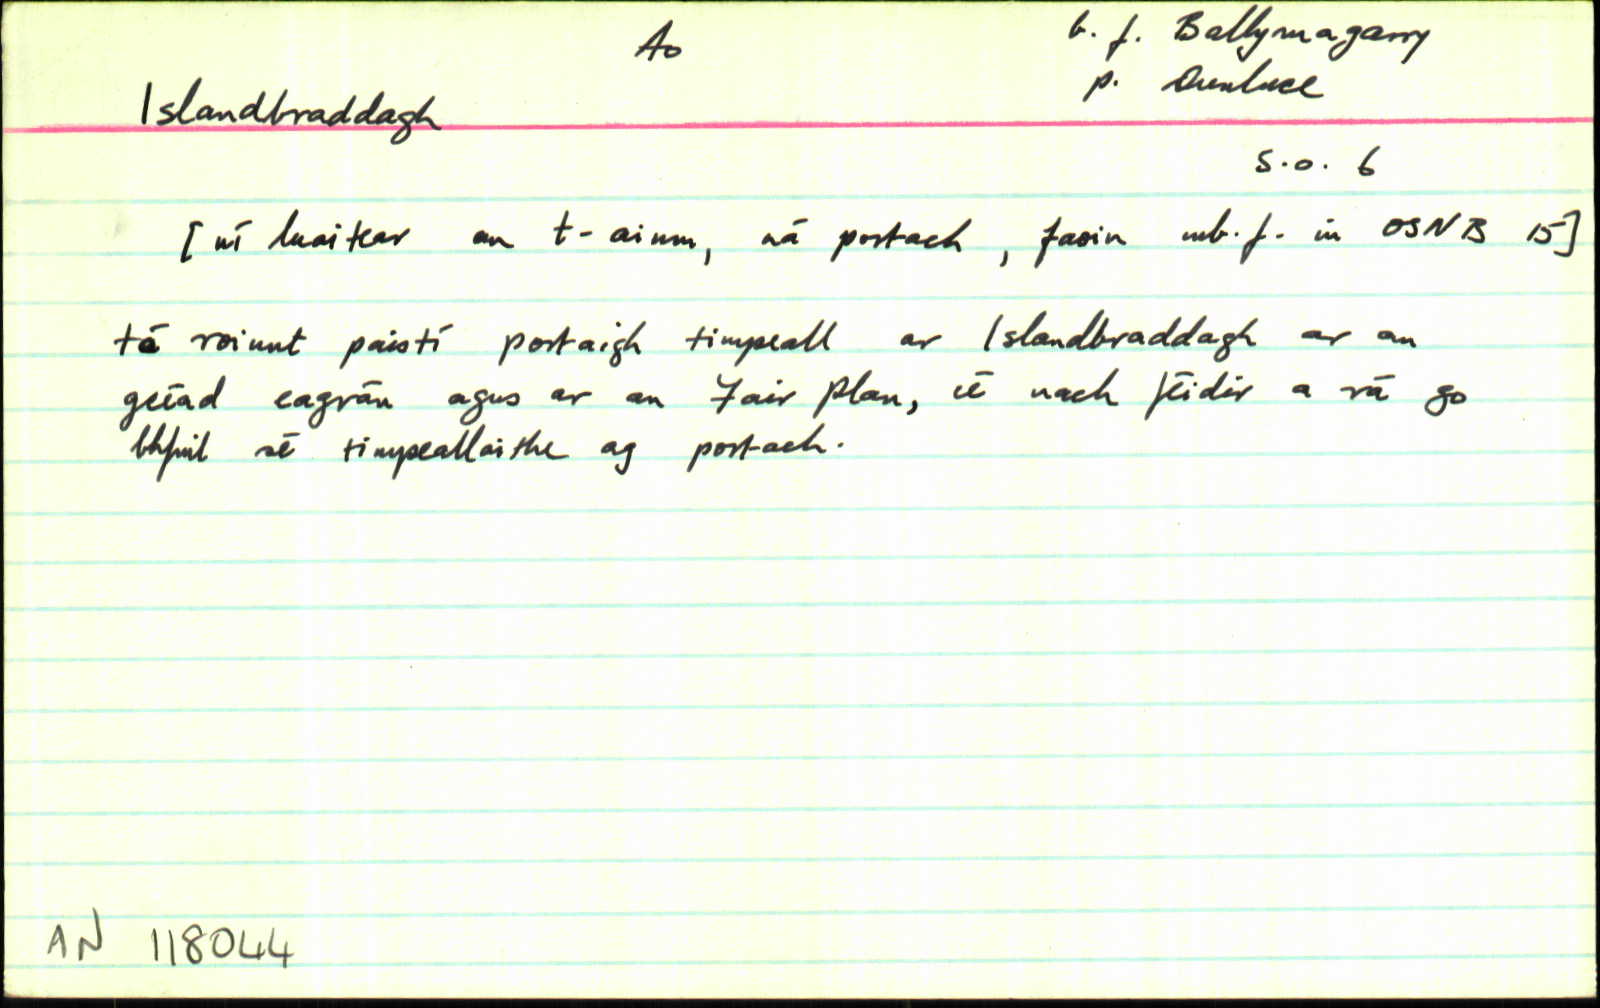 Ao
b. f. Ballymagarry
p. Dunluce
Islandbraddagh
S.O. 6
[ní luaitear an t-ainm, ná portach, faoin mb.f. in OSNB 15]
tá roinnt paistí portaigh timpeall ar Islandbraddagh ar an
gcéad eagrán agus ar an Fair Plan, cé nach féidir a rá go
bhfuil sé timpeallaithe ag portach.
AN 118044